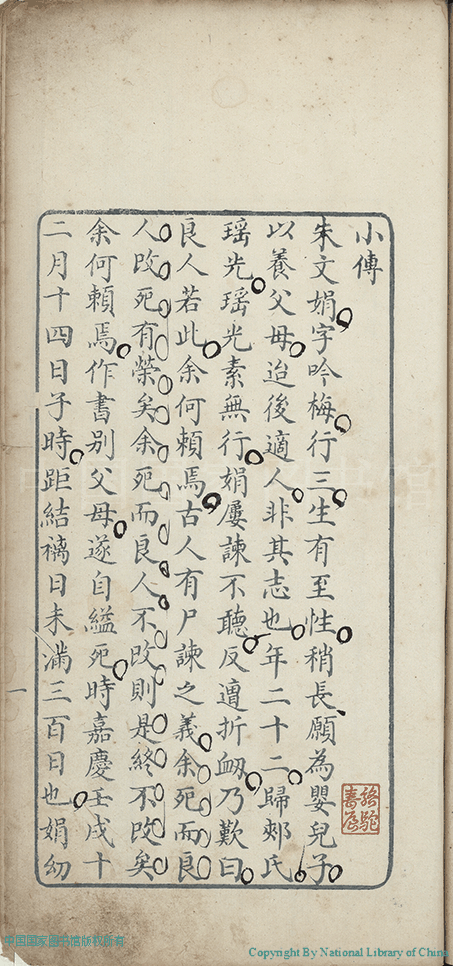 小傳
朱文娟字吟梅行三生有至性稍長願為嬰兒子
以養父母迨後適人非其志也年二十二歸郟氏
瑶光瑶光素無行娟屢諫不聽反遭折衂乃歎曰
良人若此余何頼焉古人有尸諫之義余死而良
人改死有榮矣余死而良人不改則是終不改矣
余何頼焉作書别父母遂自縊死時嘉慶壬戌十
二月十四日子時距結褵日未滿三百日也娟幼
一
駱駝書屋
中国国家图书馆版权所有
Copyright By National Library of China